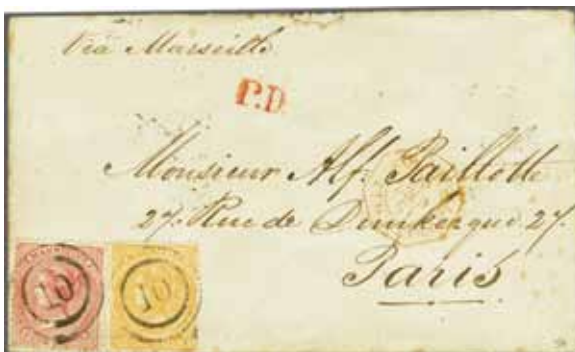 Via Marseille
P.D.
Monsieur Alf. Paillotte
27. Rue de Dunkerque 27.
Paris
10 10